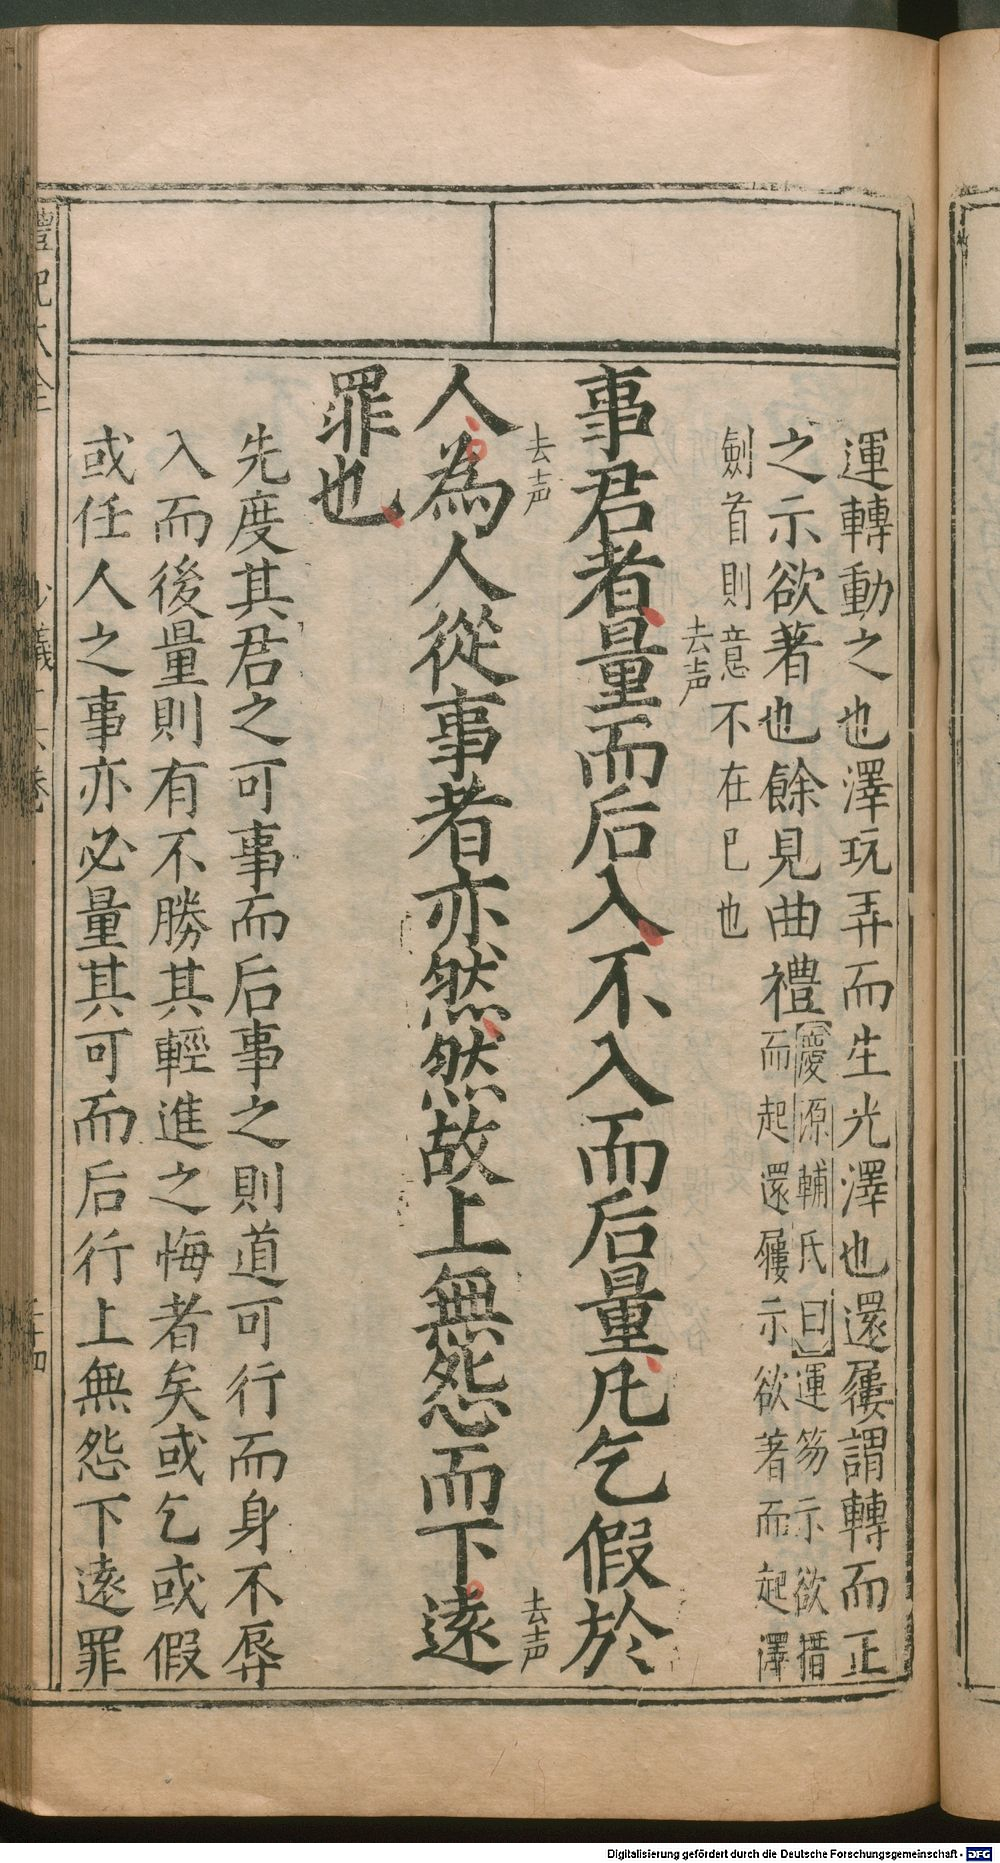 運轉動之也澤玩弄而生光澤也還屨謂轉而正
之示欲著也餘見曲禮
慶源輔氏曰運笏示欲搢
而起還屨示欲著而起澤
劍首則意不在已也
去声
事君者量而后入不入而后量凡乞假於
去声
去声
人為人從事者亦然然故上無怨而下遠
罪也
先度其君之可事而后事之則道可行而身不辱
入而後量則有不勝其輕進之悔者矣或乞或假
或任人之事亦必量其可而后行上無怨下遠罪
禮記大全
Digitalisierung gefördert durch die Deutsche Forschungsgemeinschaft - DFG